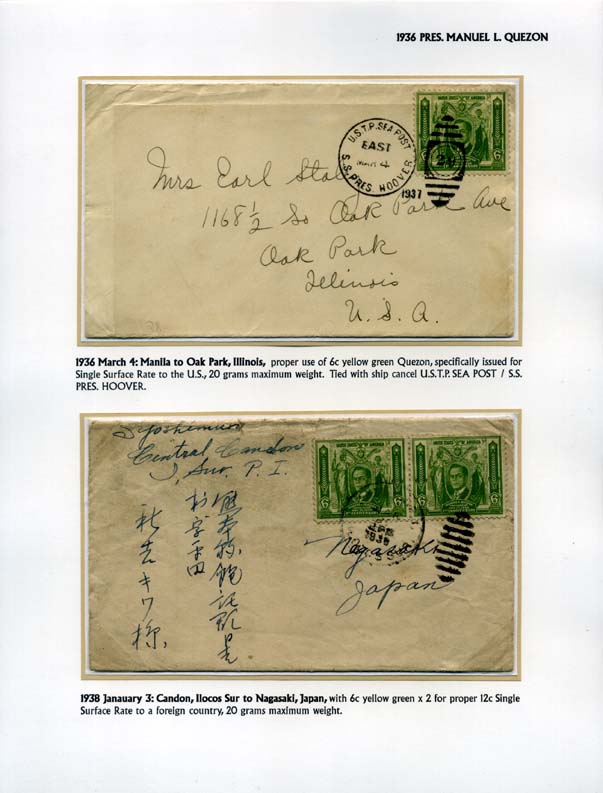 1936 PRES. MANUEL L. QUEZON
U.S.T.P. SEA POST
EAST
MAR 4
S.S. PRES. HOOVER
1937
UNITED STATES OF AMERICA
6
6
Mrs Earl
1168½ So Oak Park Ave
Oak Park
Illinois
U. S. A.
1936 March 4: Manila to Oak Park, Illinois, proper use of 6c yellow green Quezon, specifically issued for
Single Surface Rate to the U.S., 20 grams maximum weight. Tied with ship cancel U.S.T.P. SEA POST / S.S.
PRES. HOOVER.
Yoshimura
Central Candon
I. Sur. P. I.
UNITED STATES OF AMERICA
UNITED STATES OF AMERICA
6
6
6
6
Nagasaki
Japan
1938 Janauary 3: Candon, Ilocos Sur to Nagasaki, Japan, with 6c yellow green x 2 for proper 12c Single
Surface Rate to a foreign country, 20 grams maximum weight.